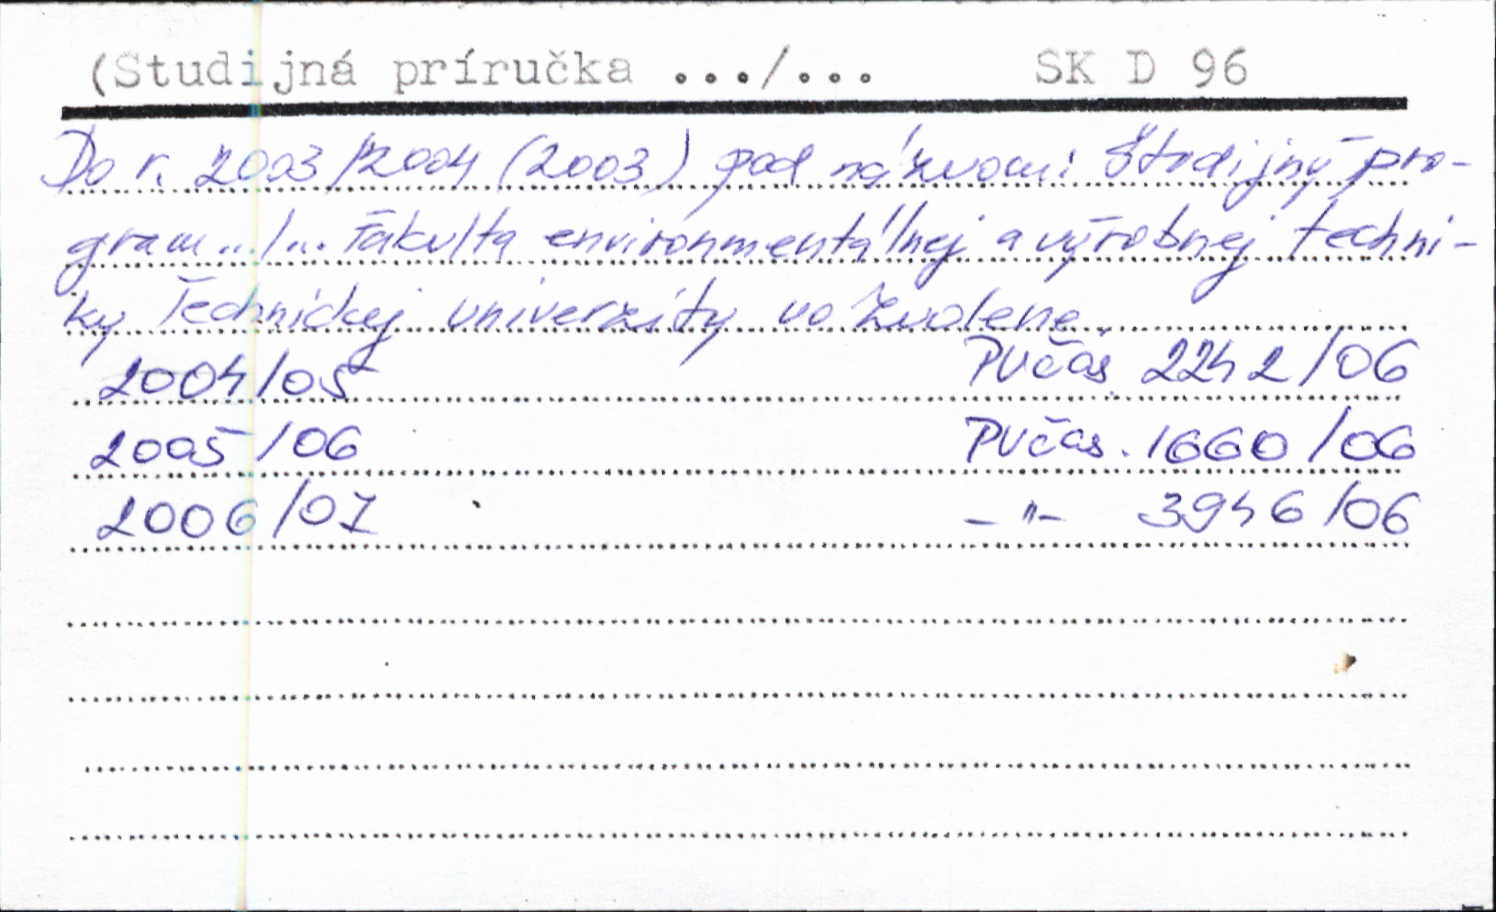 (Študijná príručka .../... SK D 96
Do r. 2003/2004 (2003) pod názvom: Študijný pro-
gram.../... Fakulta environmentálnej a výrobnej techni-
ky Technickej univerzity vo Zvolene.
2004/05 PVčas. 2242/06
2005/06 PVčas. 1660/06
2006/07 -"- 3946/06